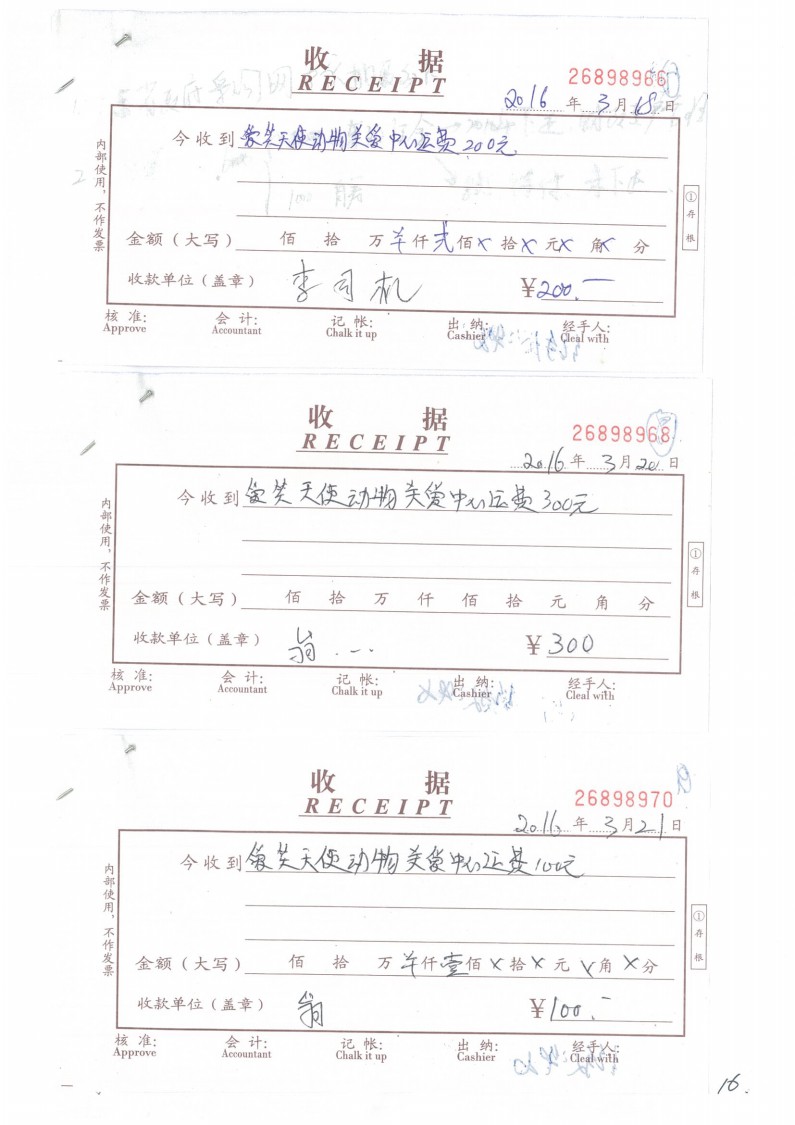 收 据
RECEIPT
26898966
2016 年 3 月 18 日
今收到 微笑天使动物关爱中心运费200元
内部使用，不作发票
① 存根
金额（大写） 佰 拾 万 羊 仟 弍 佰 X 拾 X 元 X 角 X 分
收款单位（盖章） 李司机 ¥200.一
核 准: 会 计: 记 帐: 出 纳: 经手人:
Approve Accountant Chalk it up Cashier Cleal with
收 据
RECEIPT
26898968
2016 年 3 月 20 日
今收到 微笑天使动物关爱中心运费300元
内部使用，不作发票
① 存根
金额（大写） 佰 拾 万 仟 佰 拾 元 角 分
收款单位（盖章） 翁 ¥300
核 准: 会 计: 记 帐: 出 纳: 经手人:
Approve Accountant Chalk it up Cashier Cleal with
收 据
RECEIPT
26898970
2016 年 3 月 21 日
今收到 微笑天使动物关爱中心运费100元
内部使用，不作发票
① 存根
金额（大写） 佰 拾 万 羊 仟 壹 佰 X 拾 X 元 X 角 X 分
收款单位（盖章） 翁 ¥100.一
核 准: 会 计: 记 帐: 出 纳: 经手人:
Approve Accountant Chalk it up Cashier Cleal with
16.